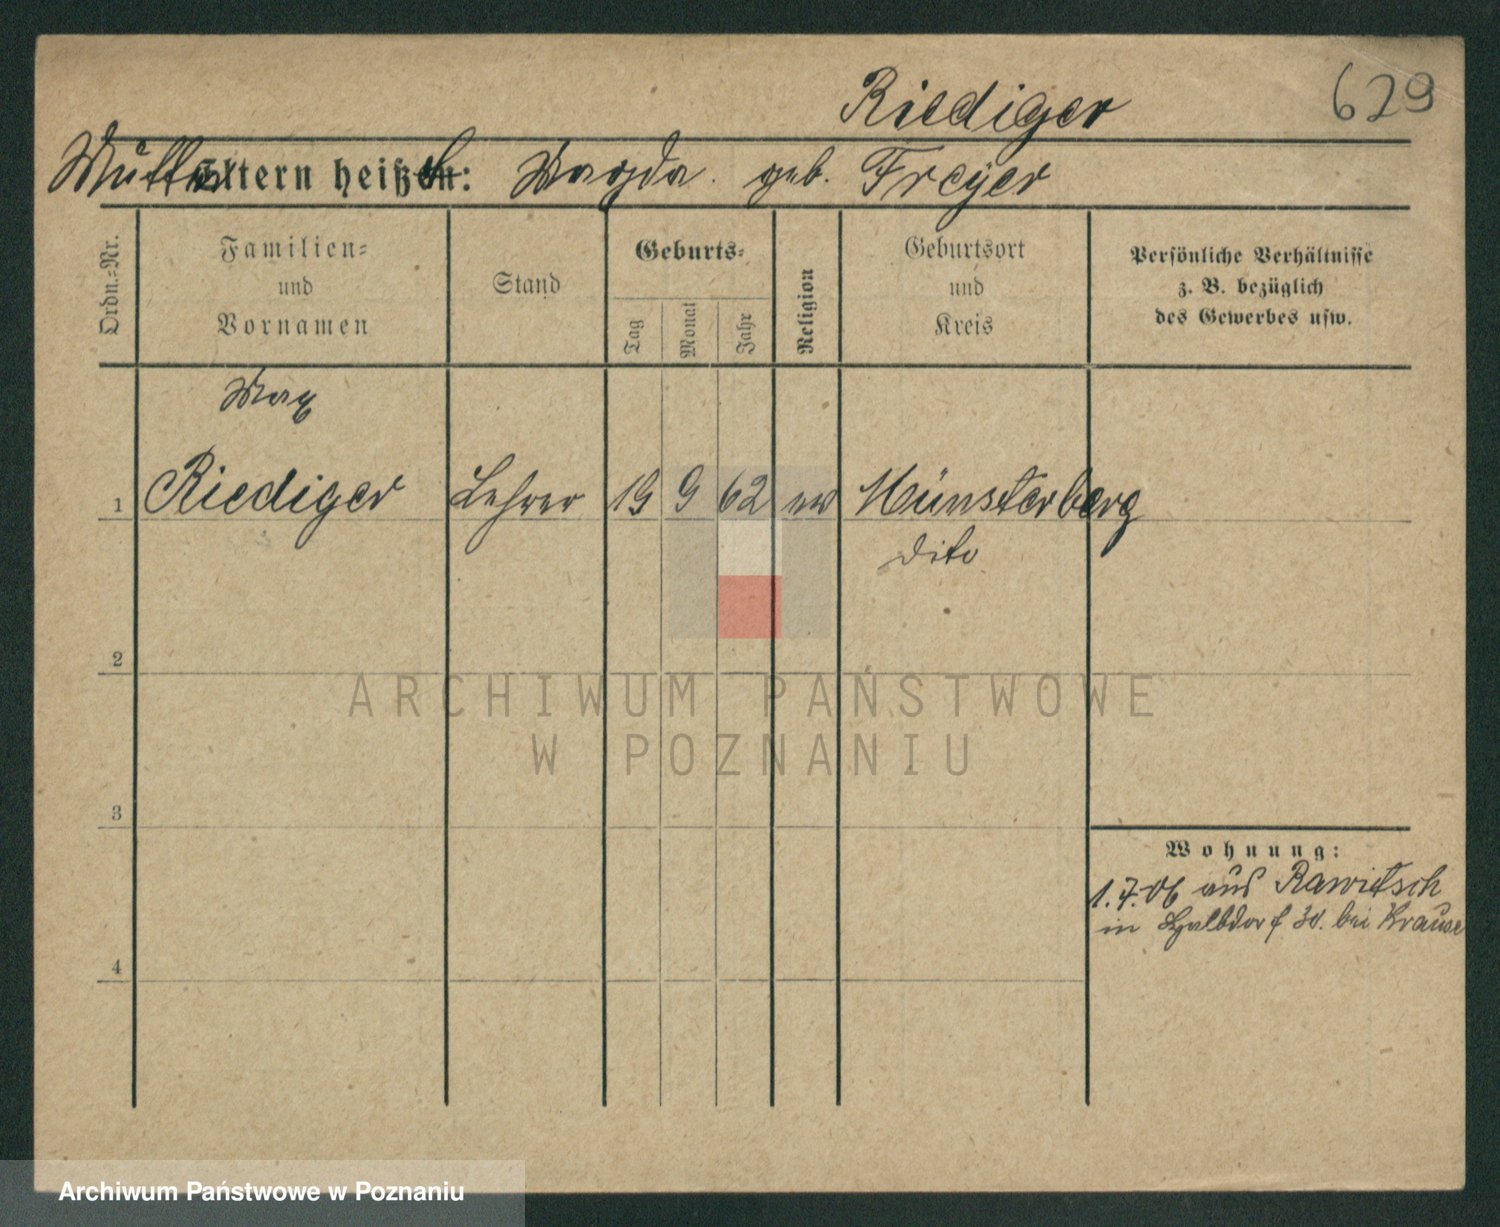 Riediger
629
Mutter Eltern heißen: Magda. geb. Freyer
Ordn.=Nr.
Familien=
und
Vornamen
Stand
Geburts=
Tag
Monat
Jahr
Religion
Geburtsort
und
Kreis
Persönliche Verhältnisse
z. B. bezüglich
des Gewerbes usw.
Max
1 Riediger Lehrer 19 9 62 ev Münsterberg
dito
2
3
4
Wohnung:
1.7.06 aus Rawitsch
in Halbdorf 30. bei Krause
ARCHIWUM PAŃSTWOWE
W POZNANIU
Archiwum Państwowe w Poznaniu